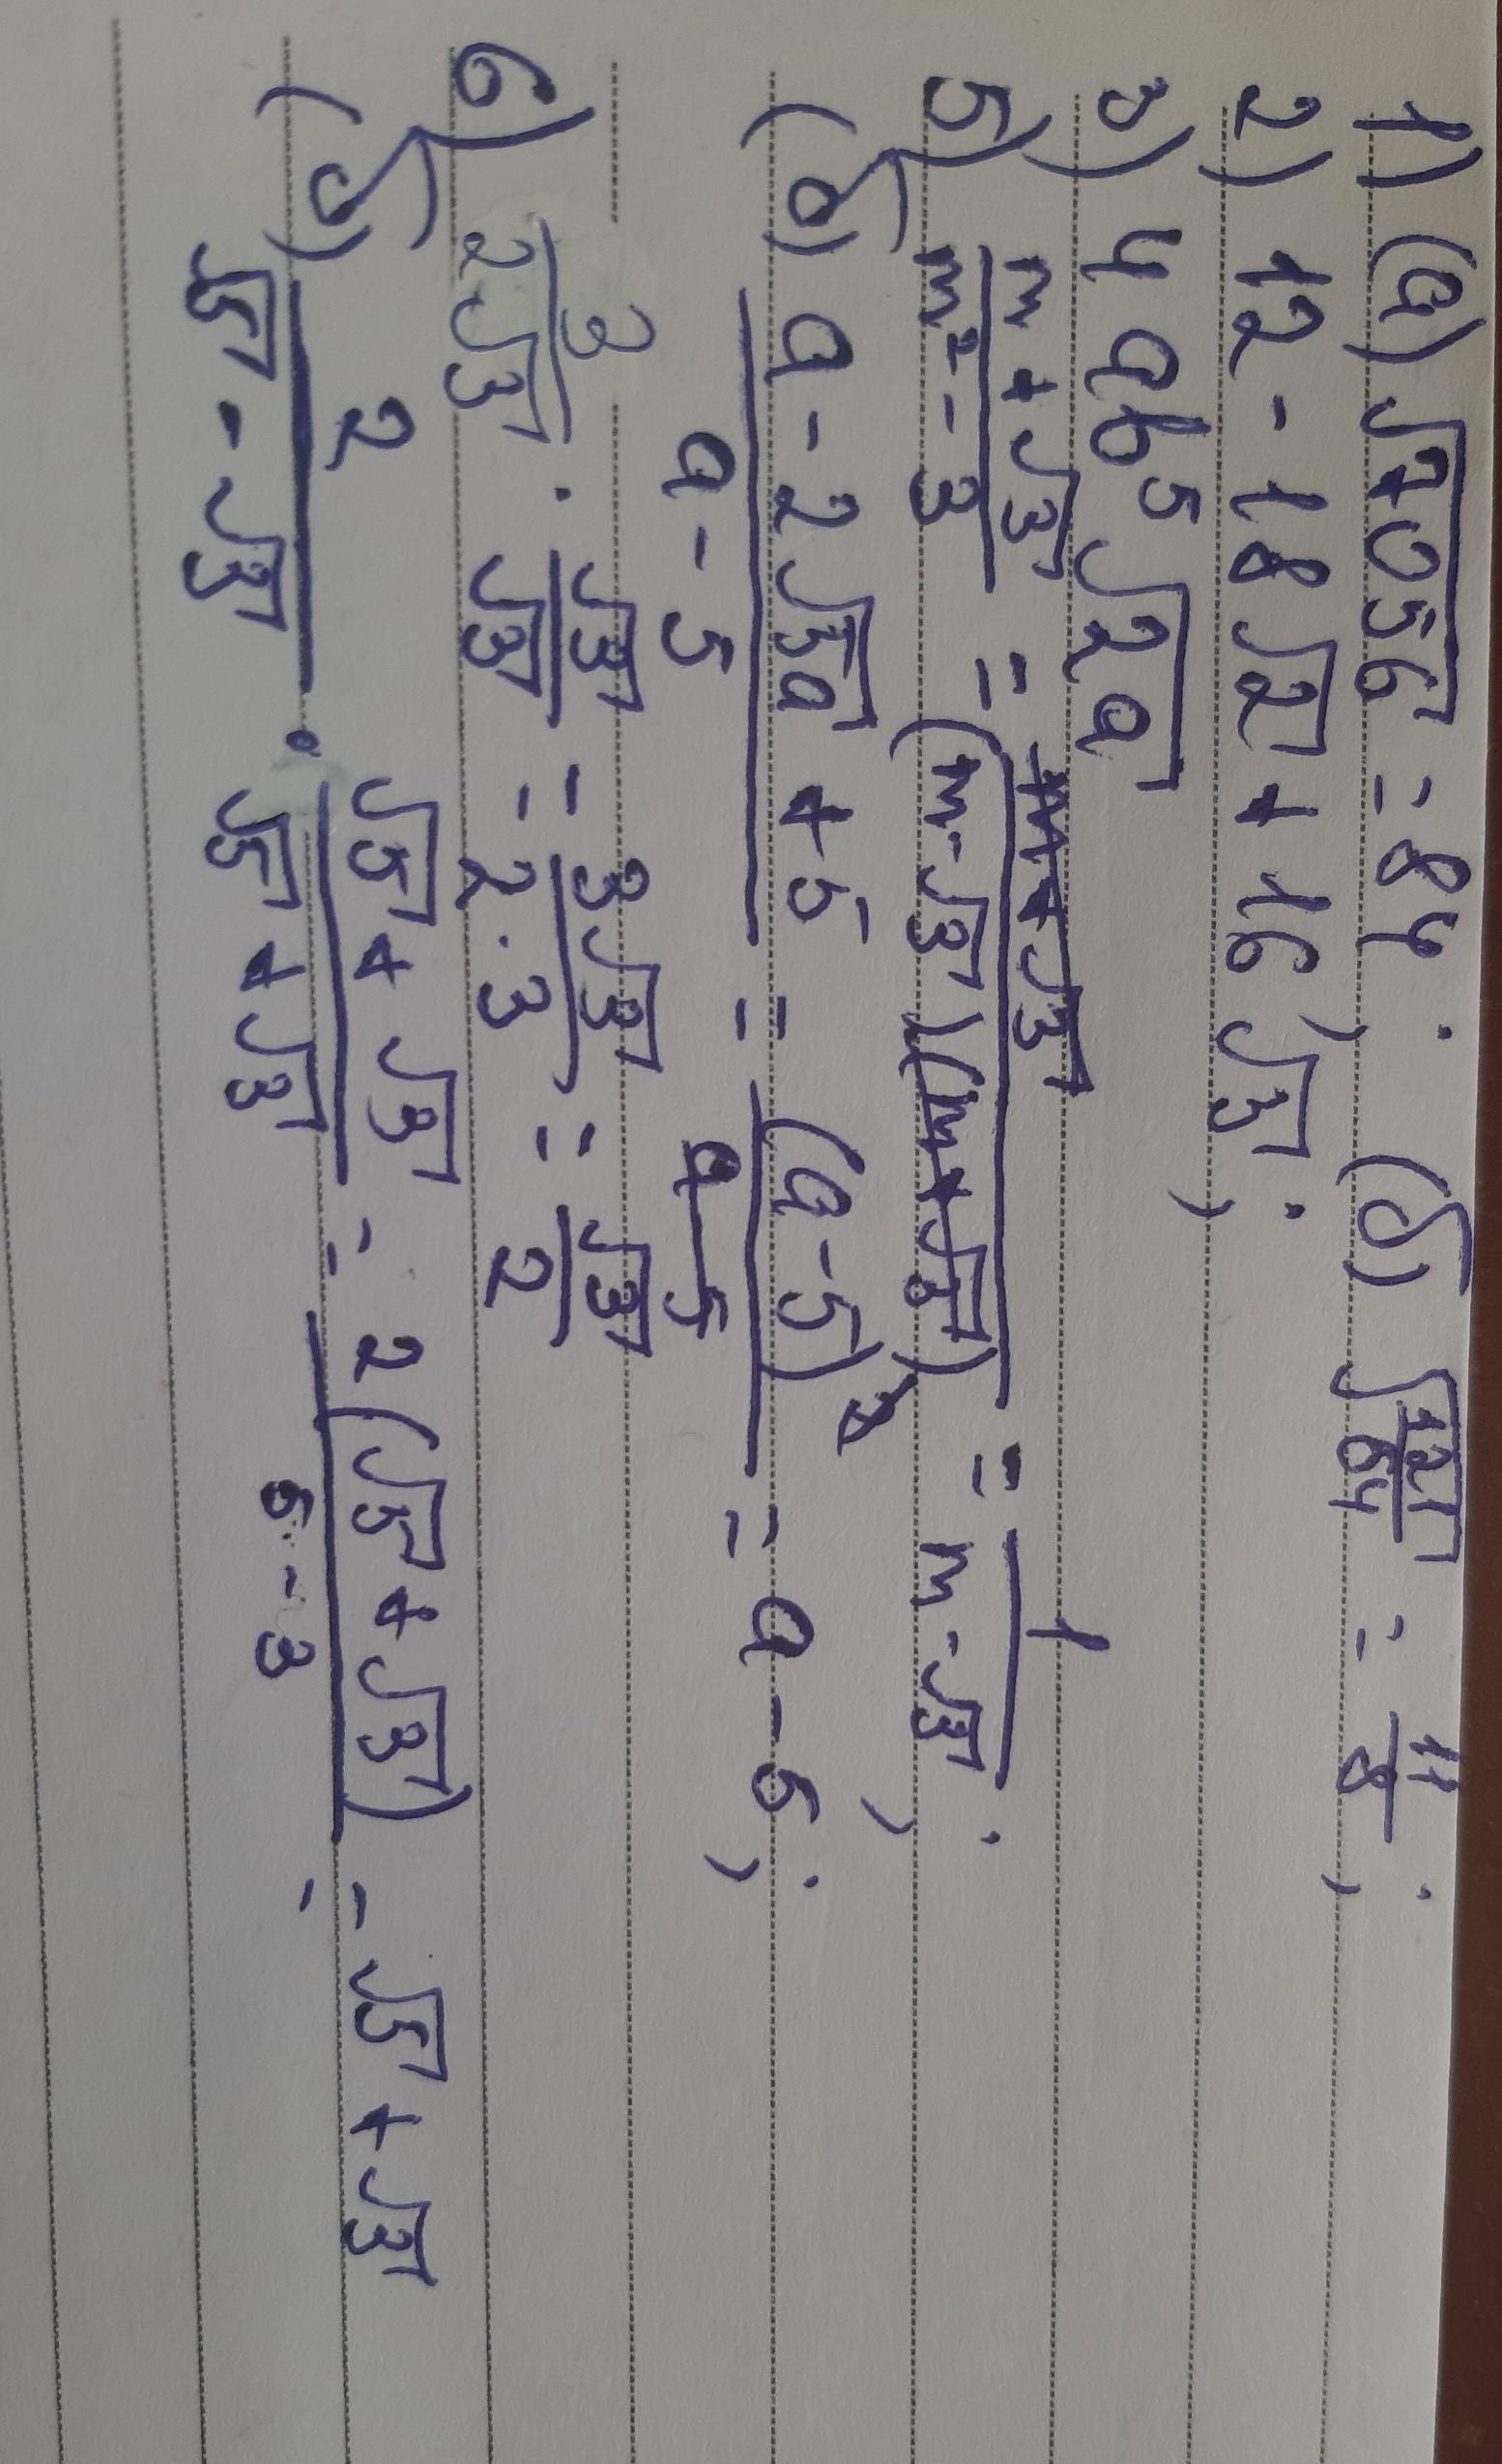 1) (a) √7056 = 84; (б) √121/64 = 11/8;
2) 12 - 18√2 + 16√3;
3) 4ab⁵√2a
5) m + √3 / m² - 3 = m + √3 / (m - √3)(m + √3) = 1 / m - √3;
(б) a - 2√5a + 5 / a - 5 = (a - 5)² / a - 5 = a - 5;
6) 3 / 2√3 · √3 / √3 = 3√3 / 2·3 = √3 / 2
(б) 2 / √5 - √3 · √5 + √3 / √5 + √3 = 2(√5 + √3) / 5 - 3 = √5 + √3